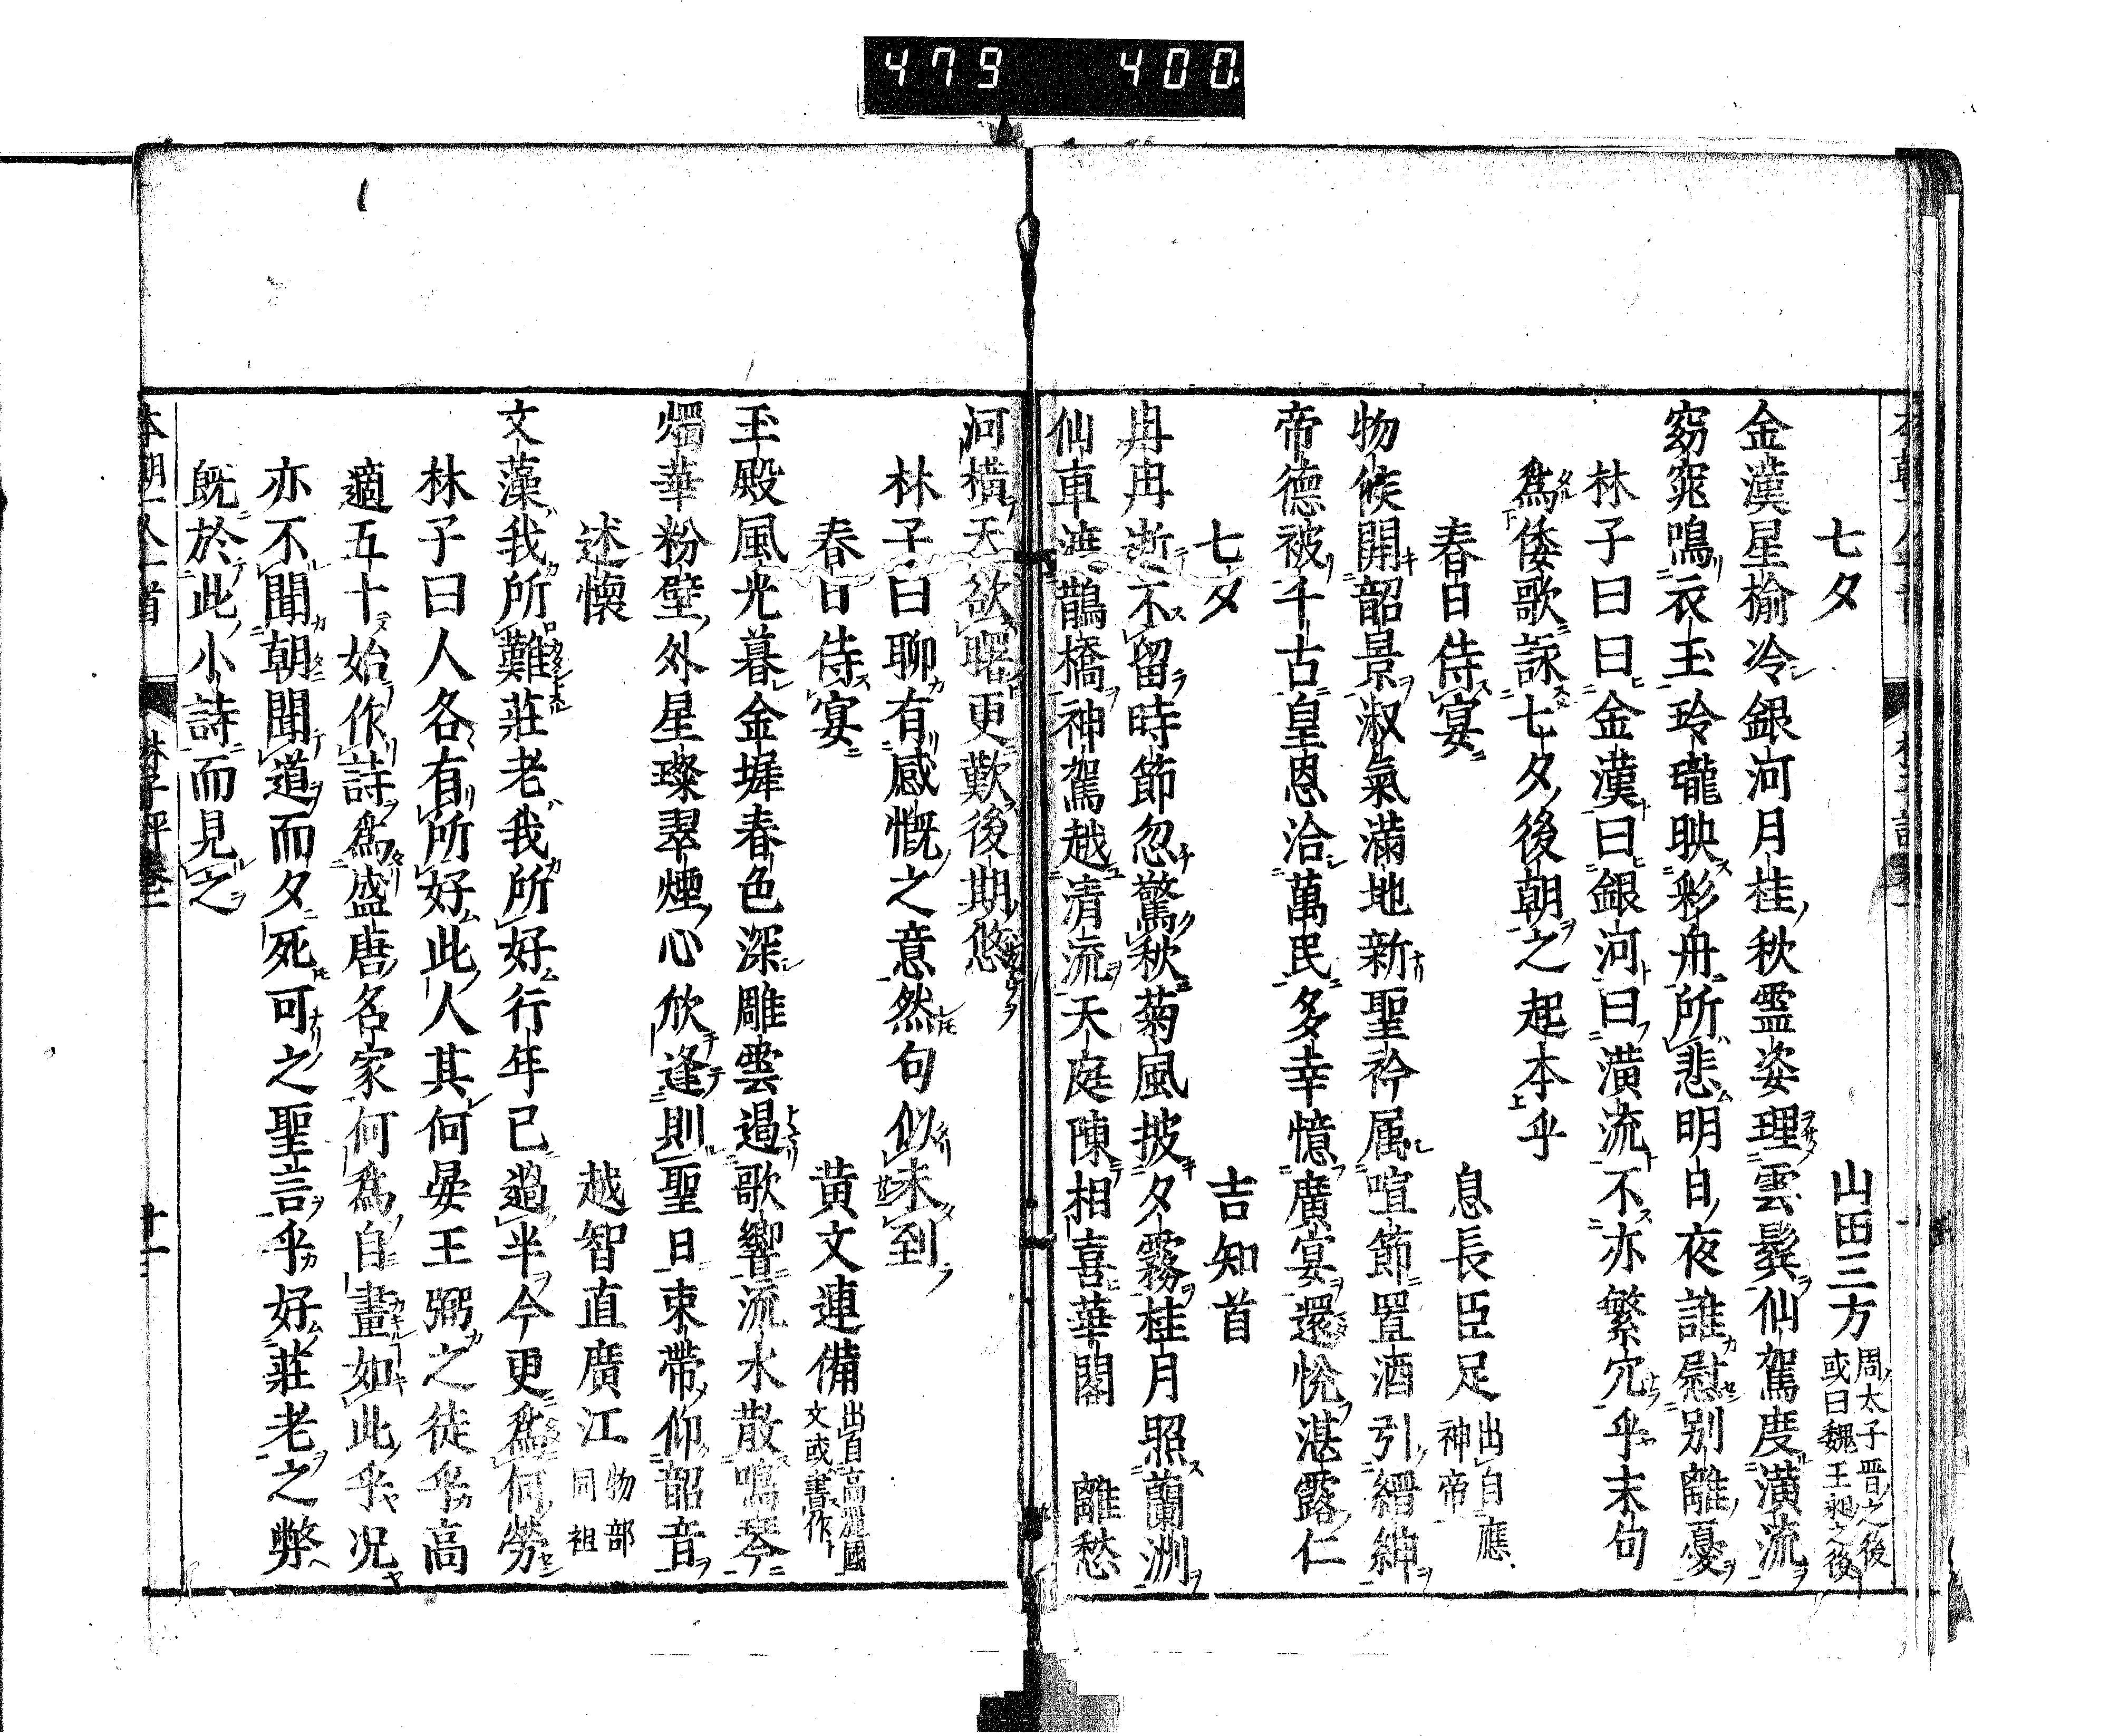 479 400
七夕 山田三方 周太子晋之後 或曰魏王昶之後
金漢星榆冷銀河月桂秋靈姿理雲鬓仙駕度潢流
窈窕鳴衣玉玲瓏映彩舟所悲明日夜誰慰别離憂
林子曰曰金漢曰銀河曰潢流不亦繁冗乎末句
爲倭歌詠七夕後朝之起本乎
春日侍宴 息長臣足 出自應神帝
物候開韶景淑氣滿地新聖衿属暄節置酒引縉紳
帝德被千古皇恩洽萬民多幸憶廣宴還悅湛露仁
七夕 吉知首
冉冉逝不留時節忽驚秋菊風披夕霧桂月照蘭洲
仙車渡鵲橋神駕越清流天庭陳相喜華閣 離愁
河橫天欲曙更歎後期悠
林子曰聊有感慨之意然句似未到
春日侍宴 黄文連備 出自高麗國文或書作
玉殿風光暮金墀春色深雕雲遏歌響流水散鳴琴
燭華粉壁外星璨翠煙心欣逢則聖日束帶仰韶音
述懷 越智直廣江 物部同祖
文藻我所難莊老我所好行年已過半今更爲何勞
林子曰人各有所好此人其何晏王弼之徒乎高
適五十始作詩爲盛唐名家何爲自畫如此乎況
亦不聞朝聞道而夕死可之聖言乎好莊老之弊
既於此小詩而見之
本朝一人一首 林子評卷二 十一